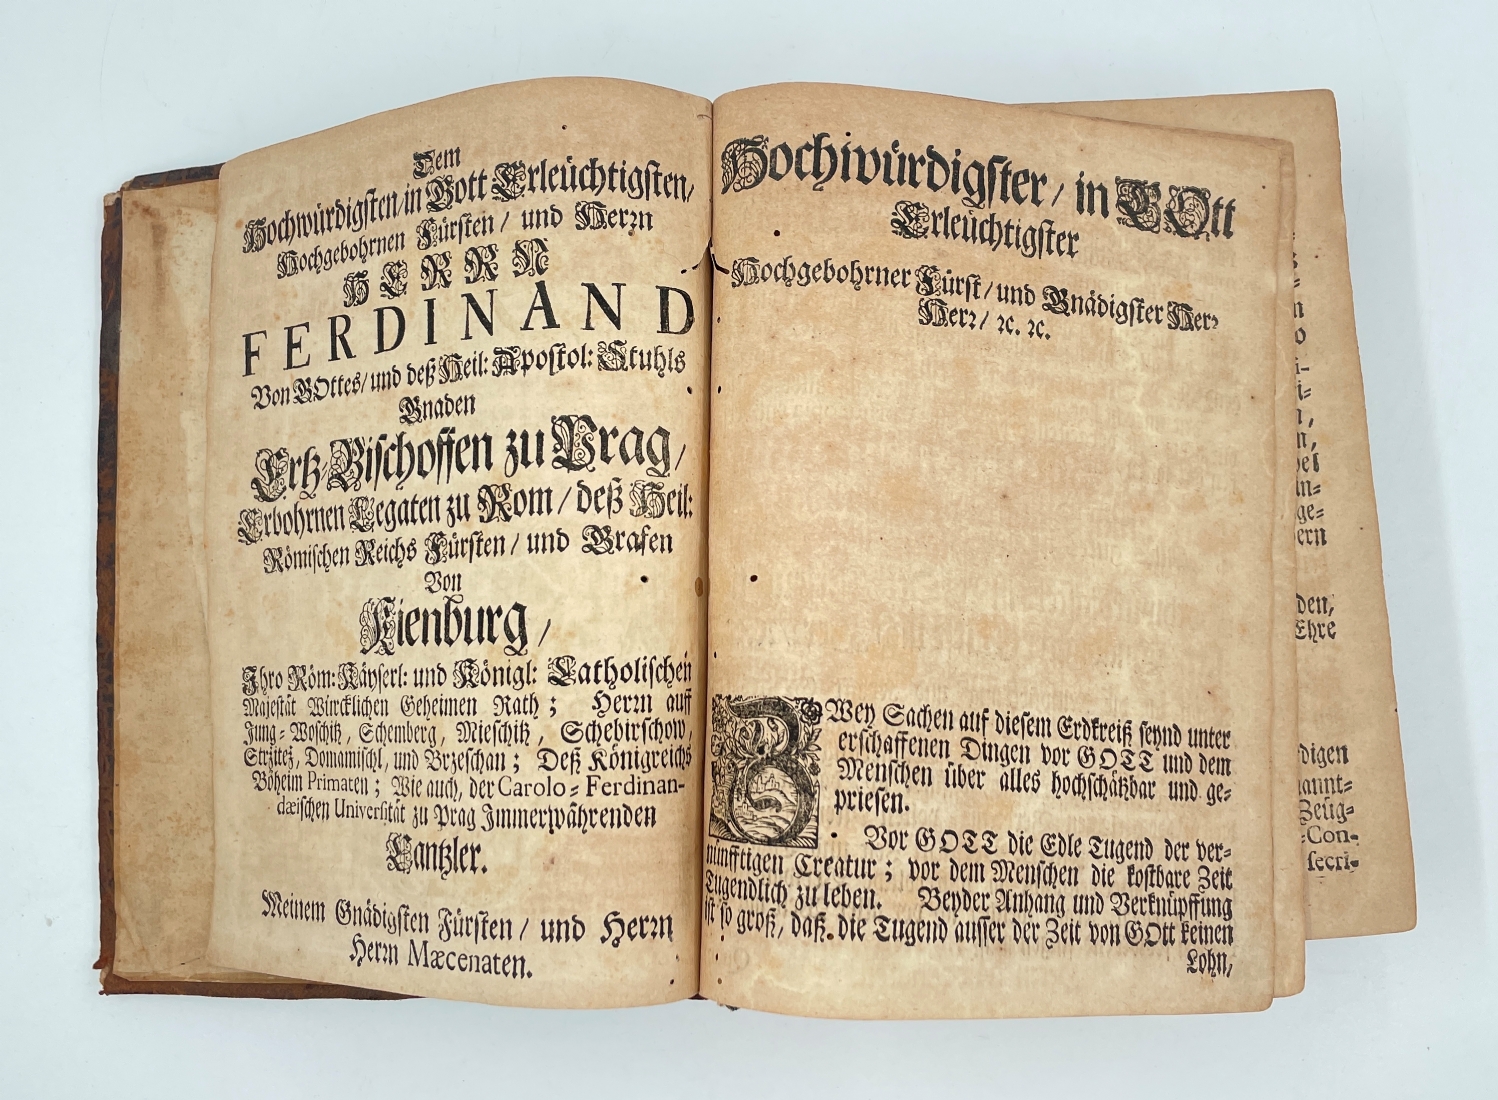 Dem
Hochwürdigsten/in Gott Erleüchtigsten,
Hochgebohrnen Fürsten / und Herrn
HERRN
FERDINAND
Von GOttes/und deß Heil: Apostol: Stuhls
Gnaden
Ertz-Bischoffen zu Prag,
Erbohrnen Legaten zu Rom / deß Heil:
Römischen Reichs Fürsten / und Grafen
Von
Kienburg,
Ihro Röm: Käyserl: und Königl: Catholischen
Majestät Würcklichen Geheimen Rath; Herrn auff
Jung-Woschitz, Schemberg, Mieschitz, Schebirschow,
Strzitez, Domamischl, und Brzeschan; Deß Königreichs
Böheim Primaten; Wie auch, der Carolo-Ferdinan-
dæischen Universität zu Prag Immerwährenden
Cantzler.
Meinem Gnädigsten Fürsten / und Herrn
Herrn Mæcenaten.
Hochwürdigster / in GOtt
Erleüchtigster
Hochgebohrner Fürst / und Gnädigster Herr
Herr / ꝛc. ꝛc.
ZWey Sachen auf diesem Erdkreiß seynd unter
erschaffenen Dingen vor GOTT und dem
Menschen über alles hochschätzbar und ge-
priesen.
Vor GOTT die Edle Tugend der ver-
nünfftigen Creatur; vor dem Menschen die kostbare Zeit
Tugendlich zu leben. Beyder Anhang und Verknüpffung
ist so groß, daß die Tugend ausser der Zeit von GOtt keinen
Lohn,
den,
Ehre
digen
annt-
Zeug-
-Con-
secri-